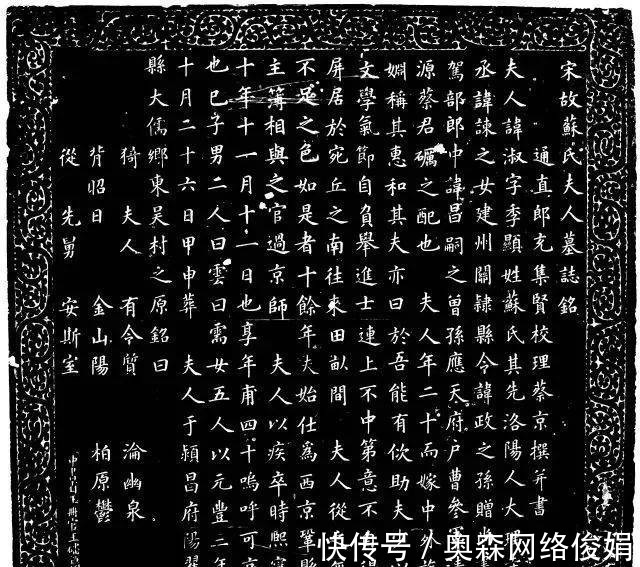 宋故蘇氏夫人墓誌銘
通直郎充集賢校理蔡京撰并書
夫人諱淑字季顯姓蘇氏其先洛陽人大理
丞諱諫之女建州關隸縣令諱政之孫贈尚書
駕部郎中諱昌嗣之曾孫應天府戶曹參軍
源蔡君礪之配也 夫人年二十而嫁中外族
婣稱其惠和其夫亦曰於吾能有佽助夫以
文學氣節自負舉進士連上不中第意不自得
屏居於宛丘之南往來田畝間 夫人從之無
不足之色如是者十餘年夫始仕為西京鞏縣
主簿相與之官過京師 夫人以疾卒時熙寧
十年十一月十一日也享年甫四十嗚呼可哀
也巳子男二人曰雲曰需女五人以元豐二年
十月二十六日甲申葬 夫人于潁昌府陽翟
縣大儒鄉東吳村之原銘曰
猗 夫人 有令質 淪幽泉
背昭日 金山陽 柏原鬱
從 先舅 安斯室
快传号/奥森网络俊娟